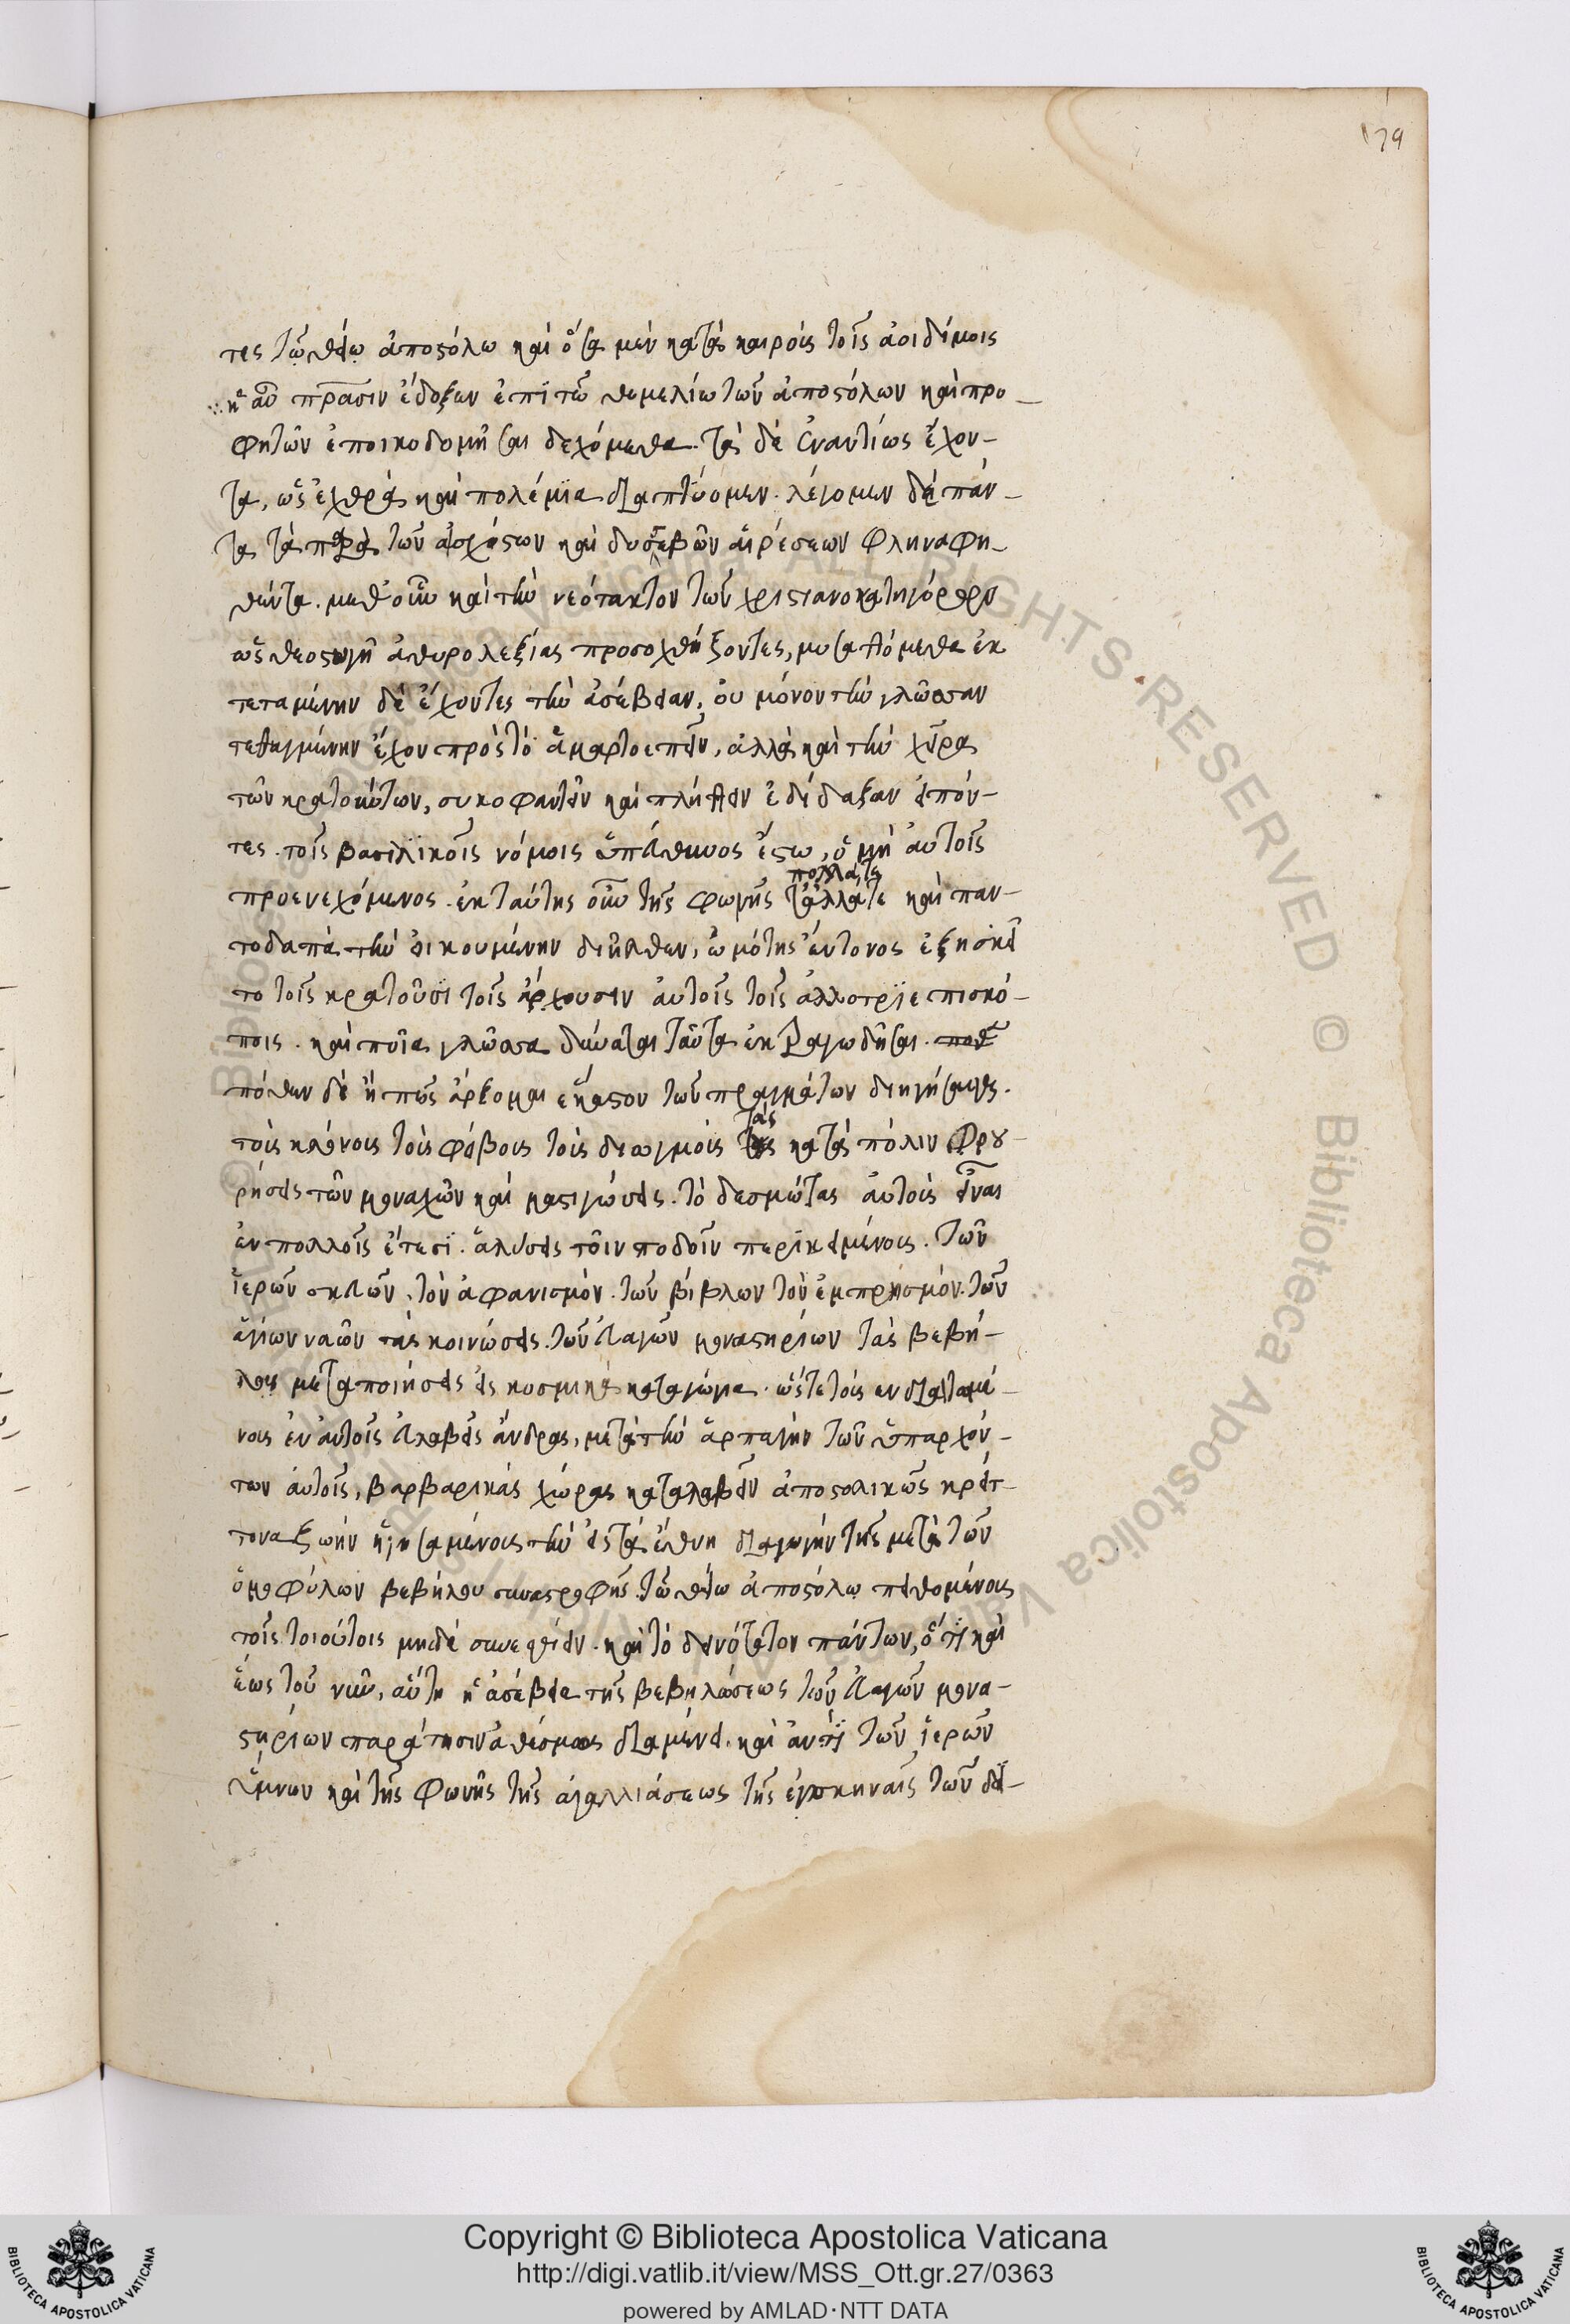 179
τες τῷ θείῳ ἀποστόλω καὶ ὅσα μὲν κατὰ καιροὺς τοῖς ἀοιδίμοις
πρασιν ἔδοξαν ἐπὶ τῶ θεμελίω τῶν ἀποστόλων καὶ προ-
φητῶν ἐποικοδομῆσαι δεχόμεθα. τὰ δὲ ἐναντίως ἔχον-
τα, ὡς ἐχθρὰ καὶ πολέμια διαπτύομεν. λέγομεν δὴ πάν-
τα τὰ παρὰ τῶν αἰσχίστων καὶ δυσσεβῶν αἱρέσεων φληναφη-
θέντα. μεθ' οὖν καὶ τὴν νεότακτον τῶν χριστιανοκατηγόρων
ὡς θεοστυγῆ ἀθυρολεξίας προσοχθήζοντες, μυσαττόμεθα ἐκ
τεταμένην δὲ ἔχοντες τὴν ἀσέβειαν, οὐ μόνον τὴν γλῶσσαν
τεθηγμένην ἔχον πρὸς τὸ ἁμαρτοεπεῖν, ἀλλὰ καὶ τὴν χεῖρα
τῶν κρατούντων, συκοφαντεῖν καὶ πλήττειν ἐδίδαξαν εἰπόν-
τες. τοῖς βασιλικοῖς νόμοις ὑπεύθυνος ἔστω, ὁ μὴ αὐτοῖς
πολλά τε
προενεχόμενος. ἐκ ταύτης οὖν τῆς φωνῆς τἄλλα τε καὶ παν-
τοδαπὰ τὴν οἰκουμένην διῆλθεν, ὠμότης ἔντονος ἐξησκεῖ
το τοῖς κρατοῦσι τοῖς ἄρχουσιν αὐτοῖς τοῖς ἀλλοτριεπισκό-
ποις. καὶ ποῖα γλῶσσα δύναται ταῦτα ἐκτραγωδῆσαι.
πόθεν δὲ ἢ πῶς ἄρξομαι ἕκαστον τῶν πραγμάτων διηγήσασθαι.
τὰς
τοὺς κλόνους τοὺς φόβους τοὺς διωγμοὺς κατὰ πόλιν φρου-
ρήσεις τῶν μοναχῶν καὶ μαστιγώσεις. τὸ δεσμώτας αὐτοὺς εἶναι
ἐν πολλοῖς ἔτεσι. ἁλύσεις τοῖν ποδοῖν περικειμένους. τῶν
ἱερῶν σκευῶν, τὸν ἀφανισμόν. τῶν βίβλων τὸν ἐμπρησμόν. τῶν
ἁγίων ναῶν τὰς κοινώσεις. τῶν εὐαγῶν μοναστηρίων τὰς βεβή-
λους μεταποιήσεις εἰς κοσμικὰ καταγώγια. ὥστε τοὺς ενδιαιταμέ-
νους ἐν αὐτοῖς εὐλαβεῖς ἄνδρας, μετὰ τὴν ἁρπαγὴν τῶν ὑπαρχόν-
των αὐτοῖς, βαρβαρικὰς χώρας καταλαβεῖν ἀποστολικῶς κρείτ-
τονα ζωὴν ἡγησαμένους τὴν εἰς τὰ ἔθνη διαγωγὴν τῆς μετὰ τῶν
ὁμοφύλων βεβήλου συναστροφῆς. τῶ θείω ἀποστόλω πειθομένους
τοῖς τοιούτοις μηδὲ συνεσθίειν. καὶ τὸ δεινότατον πάντων, ὅτι καὶ
ἕως τοῦ νῦν, αὕτη ἡ ἀσέβεια τῆς βεβηλώσεως τῶν εὐαγῶν μονα-
στηρίων παρά τισιν ἀθέσμως διαμένει. καὶ ἀντὶ τῶν ἱερῶν
ὕμνων καὶ τῆς φωνῆς τῆς ἀγαλλιάσεως τῆς ἐν σκηναῖς τῶν δι-
Copyright © Biblioteca Apostolica Vaticana
http://digi.vatlib.it/view/MSS_Ott.gr.27/0363
powered by AMLAD·NTT DATA
BIBLIOTECA APOSTOLICA VATICANA
BIBLIOTECA APOSTOLICA VATICANA